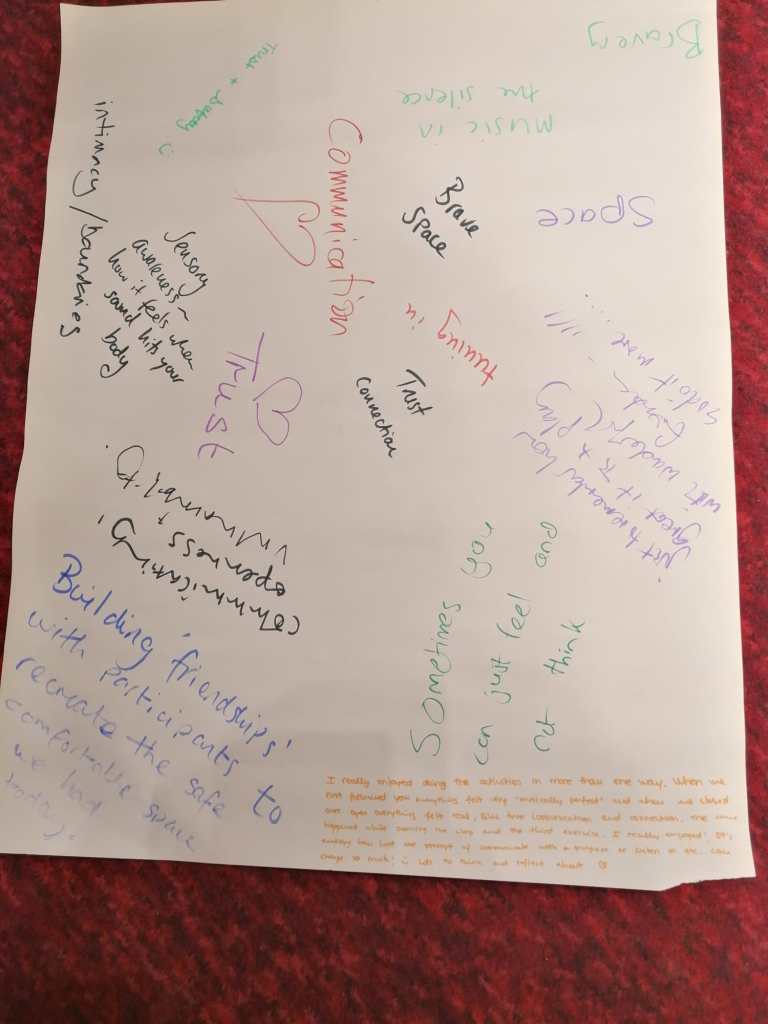 Bravery
music in
the silence
Trust +
:)
intimacy / boundaries
Communication
Brave
Space
Space
Sensory
awareness ~
how it feels when
sound hits your
body
tunning in
Trust
Trust
connection
just to remember how
great it is to play
with wonderful
so do it more ....
communication,
openness +
vulnerability.
Building 'friendships'
with participants to
recreate the safe
comfortable space
we had
today.
Sometimes you
can just feel and
not think
I really enjoyed doing the activities in more than one way. When we
first followed you everything felt very "musically perfect" and when we closed
our eyes everything felt real, like true communication and connection. The same
happened while owning the clap and the third exercise. I really enjoyed! It's
how just one attempt of communicate with a purpose or listen or etc.. can
change so much! :) Lots to think and reflect about